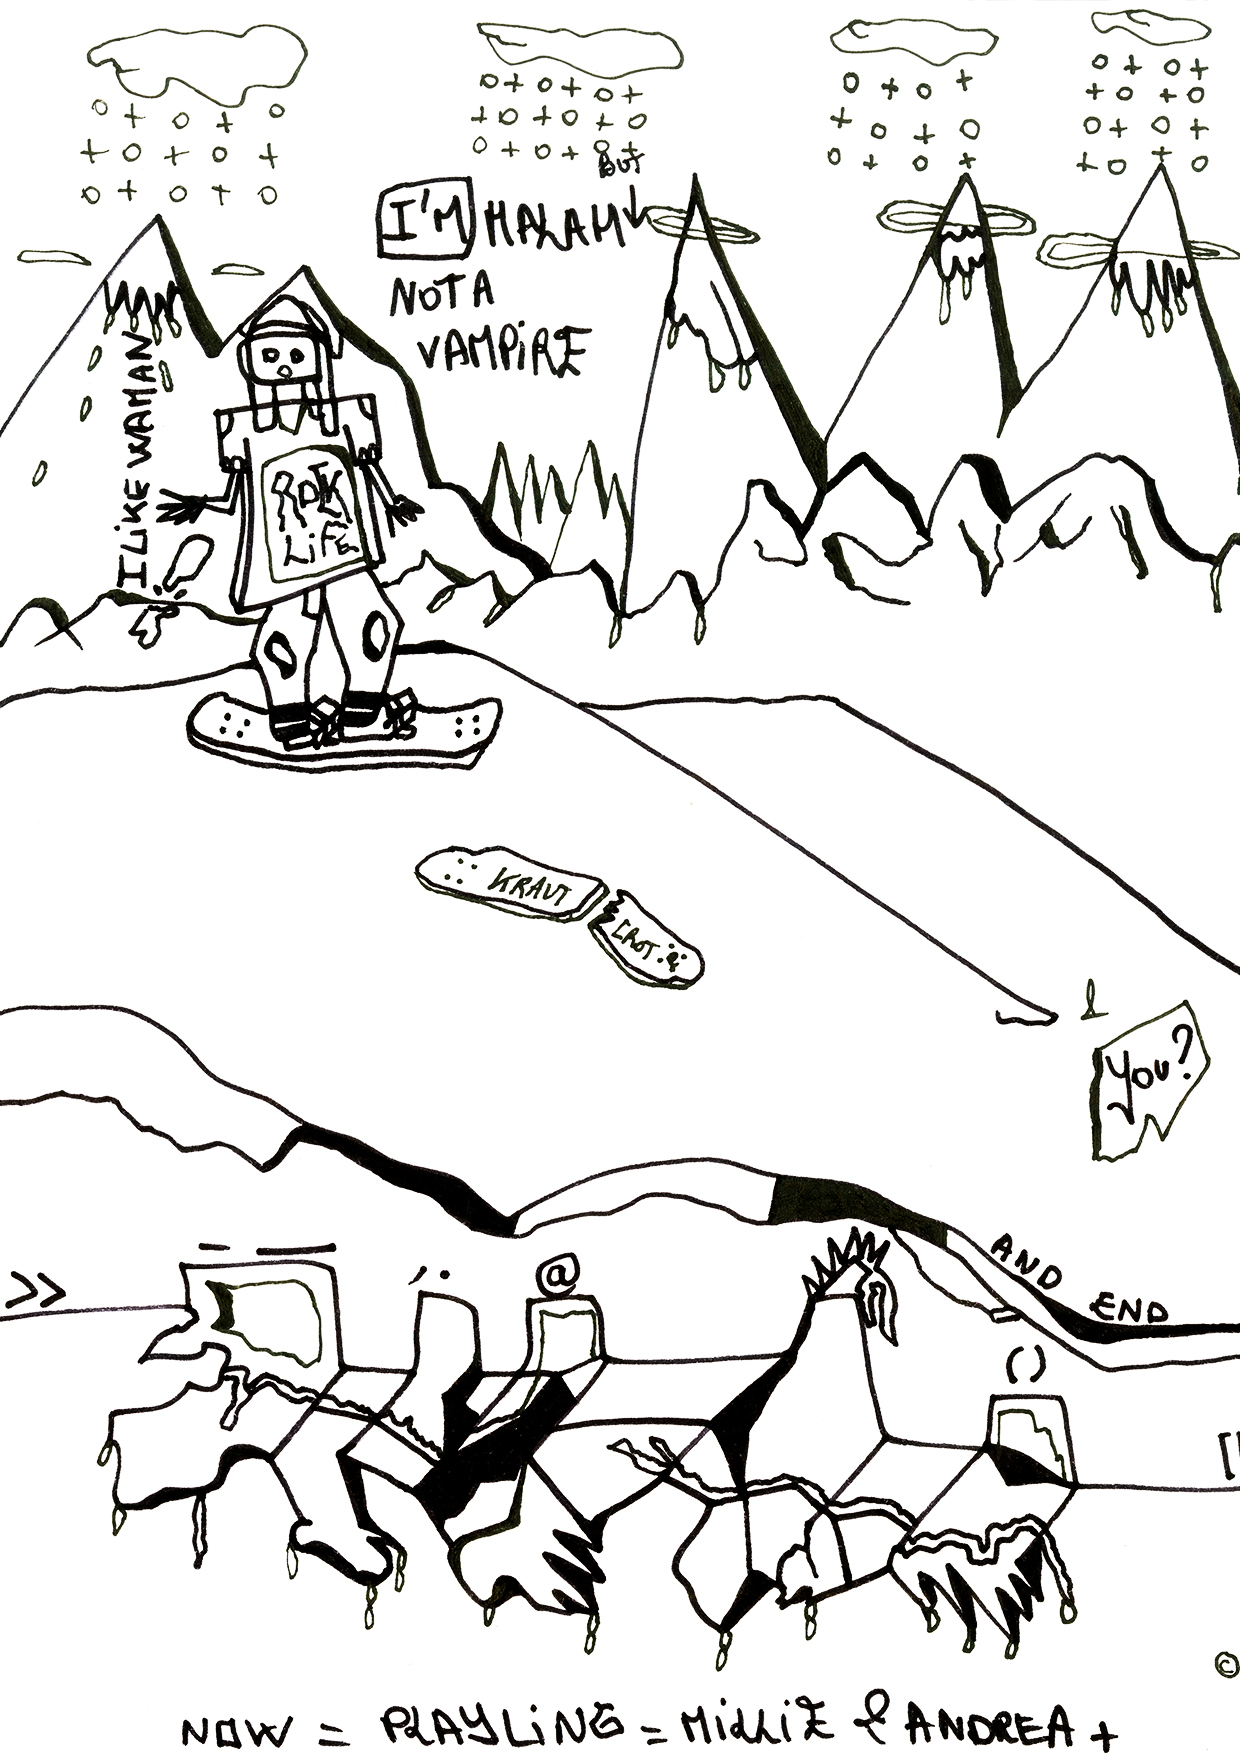 BUT
I'M MALAM
NOT A
VAMPIRE
I LIKE WAMAN
ROCK
LIFE
KRAUT
CROT.
&
YOU?
AND
END
>>
@
()
©
NOW = PLAYLING = MILLIE & ANDREA +